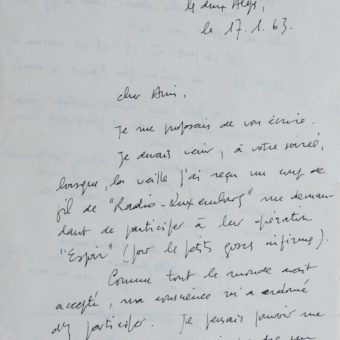 les deux Alpes,
le 17.1.63.
cher Ami,
Je me proposais de vous écrire.
Je devais venir, à votre soirée,
lorsque, la veille j'ai reçu un coup de
fil de "Radio-Luxembourg" me deman
dant de participer à leur opération
"Espoir" (pour les petits gosses infirmes).
Comme tout le monde avait
accepté, ma conscience m'a ordonné
d'y participer. Je pensais pouvoir me